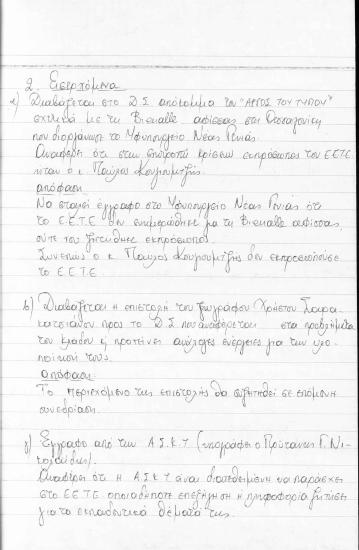 2. Εισερχόμενα
α) Διαβάζεται στο Δ.Σ απόκομμα του "ΑΡΓΟΣ ΤΟΥ ΤΥΠΟΥ"
σχετικά με τη Biennalle αφίσσας στη Θεσσαλονίκη
που διοργάνωσε το Υφυπουργείο Νέας Γενιάς.
Αναφέρει ότι στην επιτροπή κρίσεων εκπρόσωπος του ΕΕΤΕ
ήταν ο κ Παύλος
απόφαση
Να σταλεί έγγραφο στο Υφυπουργείο Νέας Γενιάς ότι
το Ε.Ε.Τ.Ε δεν ενημερώθηκε για τη Biennalle αφίσσας,
ούτε του ζητήθηκε εκπρόσωπος.
Συνεπώς ο κ Παύλος δεν εκπροσωπούσε
το Ε.Ε.Τ.Ε.
β) Διαβάζεται η επιστολή του ζωγράφου Χρήστου Σαρα-
κατσιάνου προς το Δ.Σ που αναφέρεται στα προβλήματα
του κλάδου κ προτείνει ανάλογες ενέργειες για την υλο-
ποίησή τους.
απόφαση:
Το περιεχόμενο της επιστολής θα συζητηθεί σε επόμενη
συνεδρίαση.
γ) Έγγραφο από την Α.Σ.Κ.Τ (υπογράφει ο Πρύτανης Γ. Νι-
κολαΐδης).
Αναφέρει ότι η Α.Σ.Κ.Τ είναι διατεθειμένη να παράσχει
στο ΕΕΤΕ οποιαδήποτε επεξήγηση η πληροφορία ζητήσει
για τα εκπαιδευτικά θέματά της.